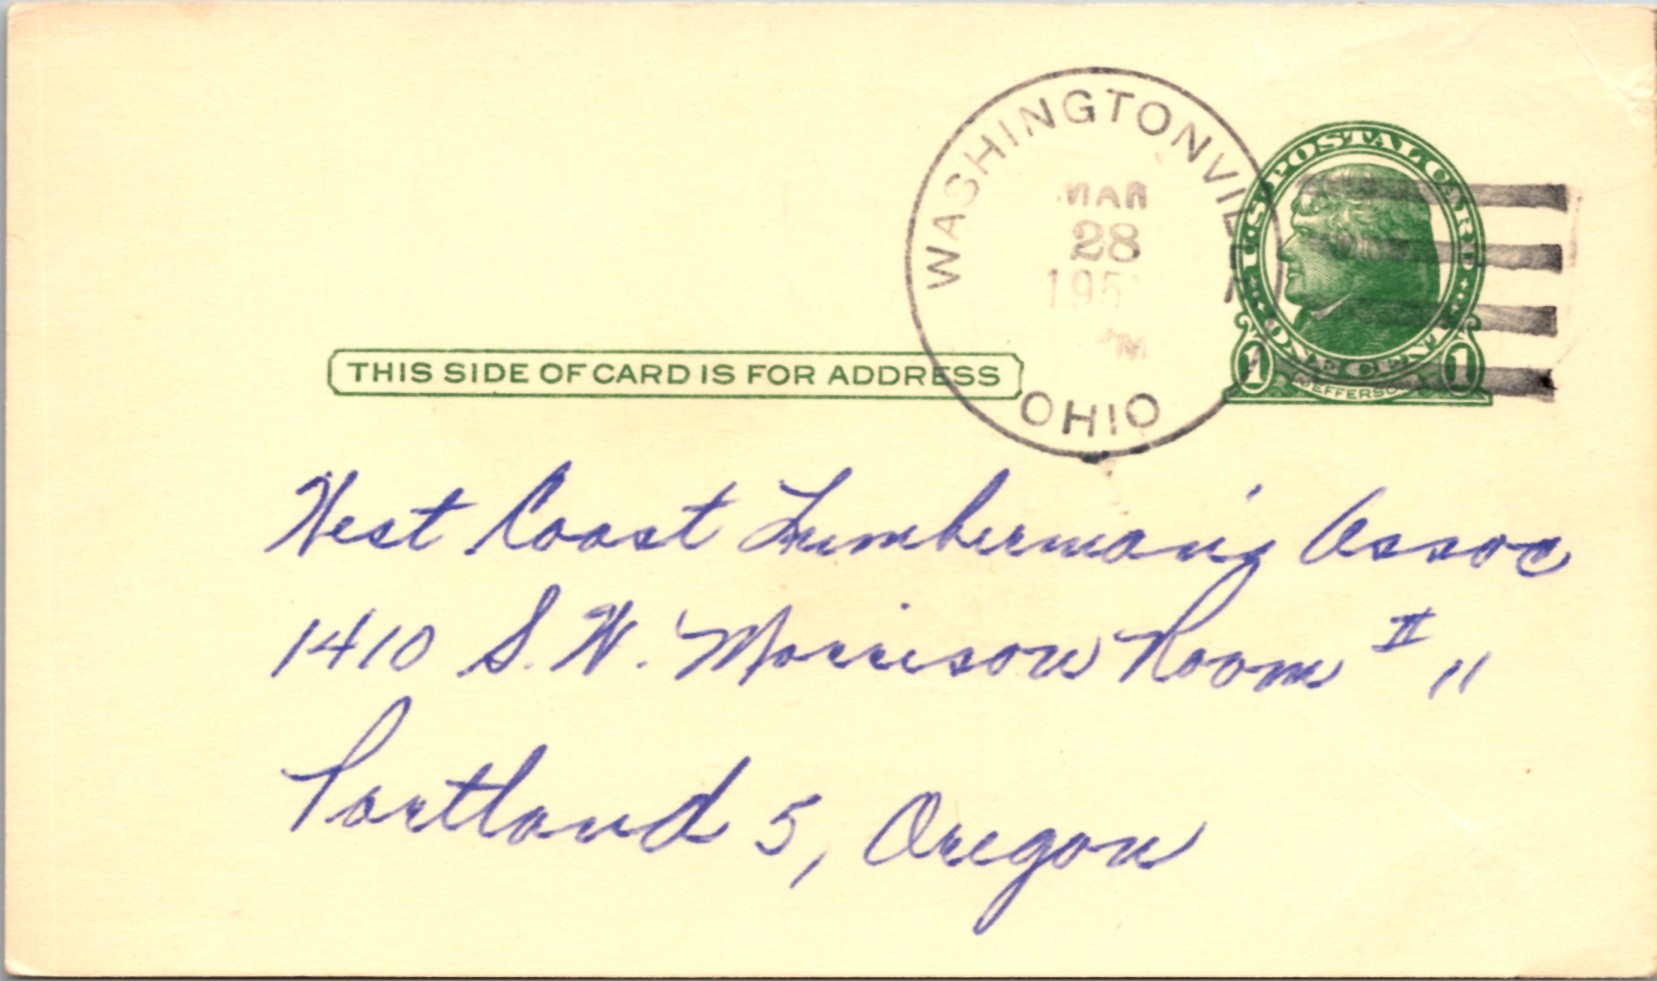 WASHINGTONVILLE
MAR
28
195
PM
OHIO
U.S. POSTAL CARD
ONE CENT
1 1
JEFFERSON
THIS SIDE OF CARD IS FOR ADDRESS
West Coast Lumberman's Assoc
1410 S.W. Morrison Room II "
Portland 5, Oregon